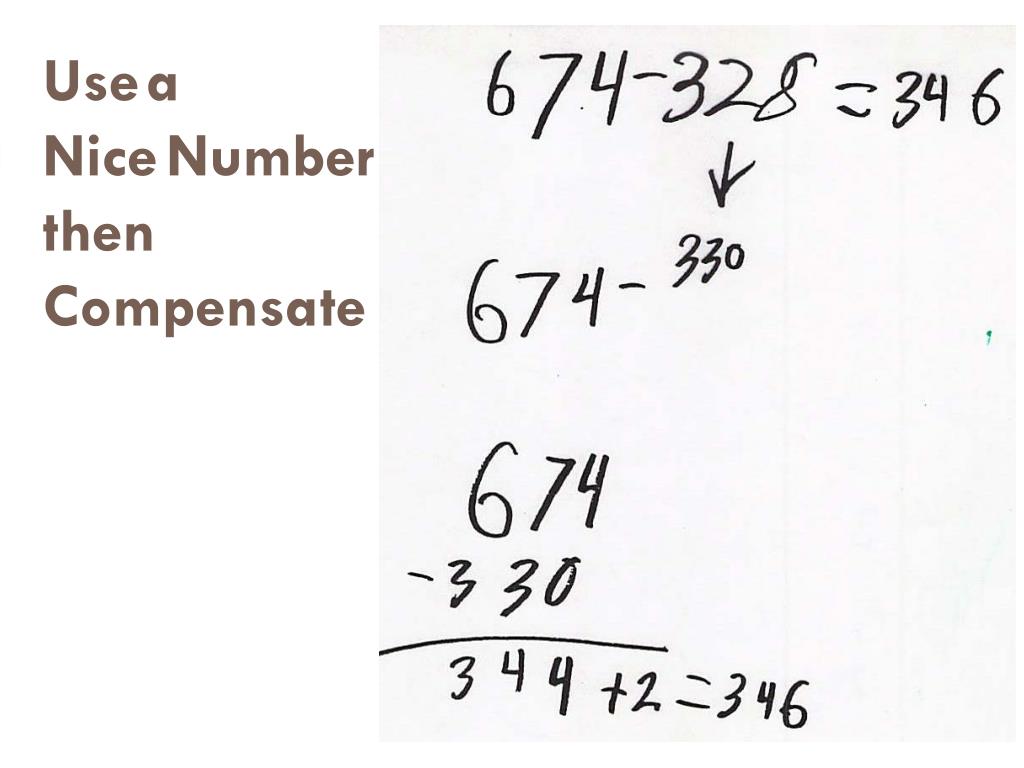 Use a
Nice Number
then
Compensate
674-328=346
↓
674-330
674
-330
344+2=346